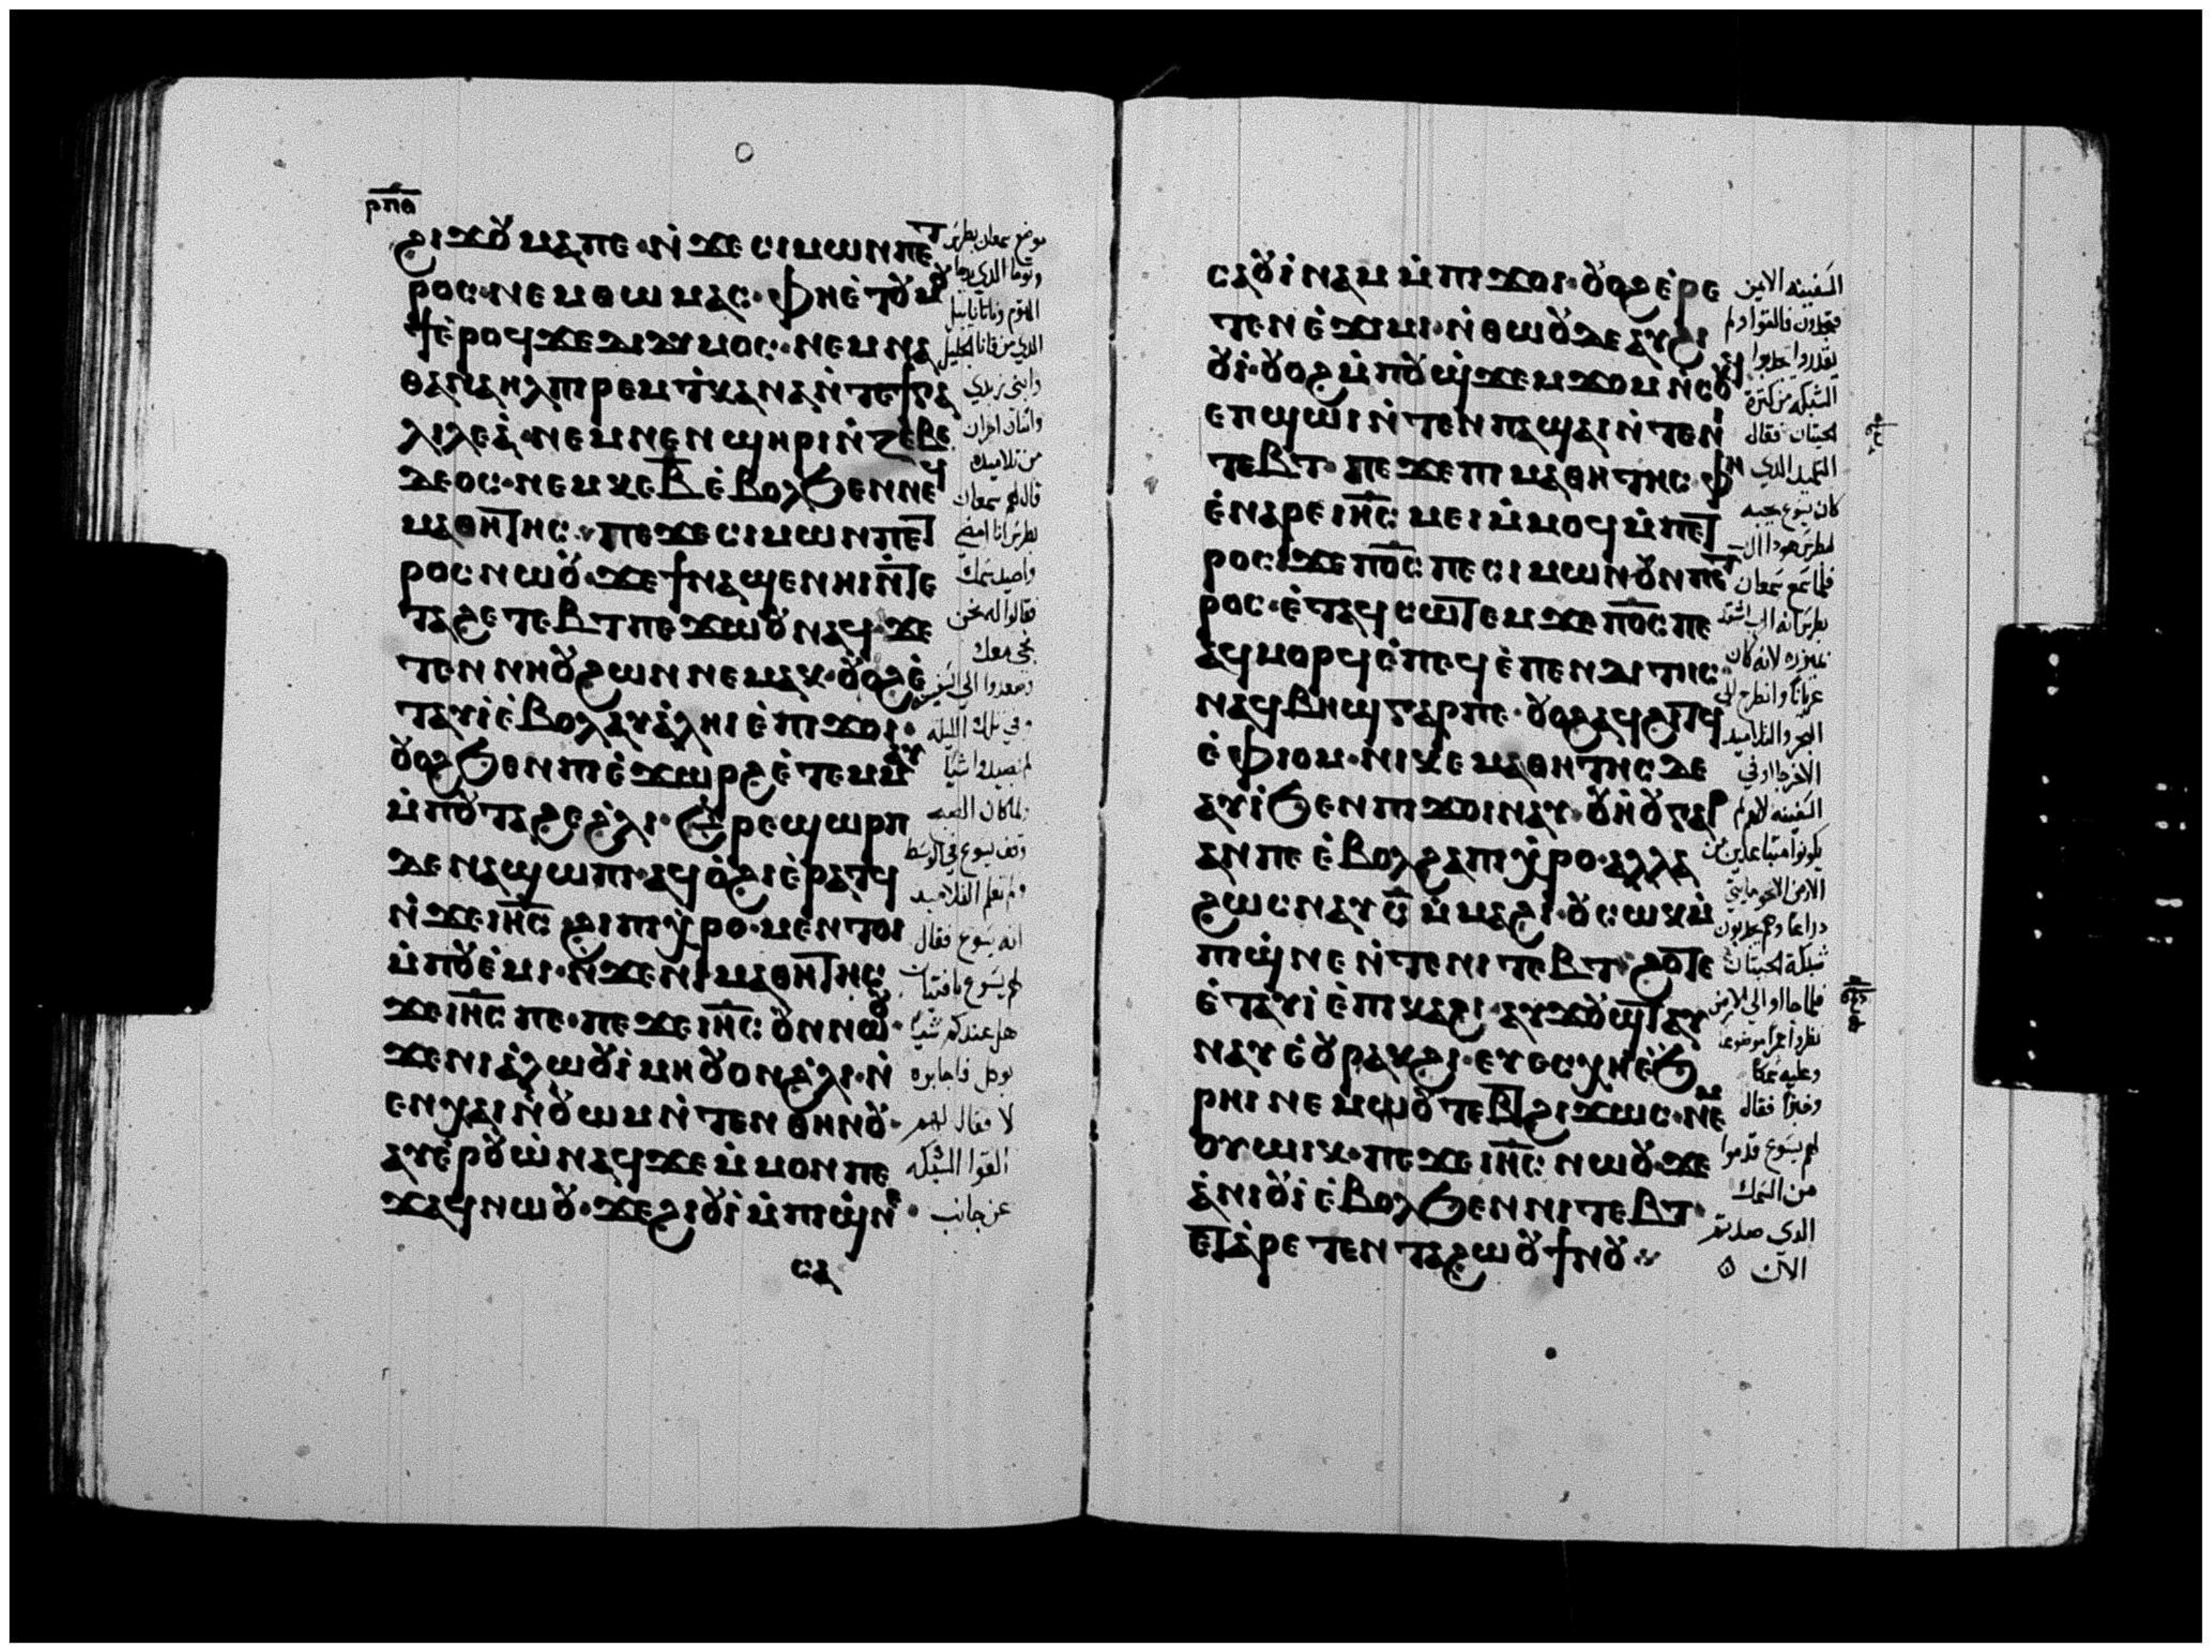 ⲣⲡⲑ
ϩⲓϫⲟⲩ ⲙⲁⲡⲉ · ⲛ̇ϫⲉ ⲥⲓⲙⲱⲛ ⲡⲉⲧ
ⲣⲟⲥ · ⲛⲉⲙ ⲑⲱⲙⲁⲥ · ⲫⲏⲉ̇ⲧⲟⲩⲙⲟⲩ
ϯⲉ̇ⲣⲟϥ ϫⲉ ⲇⲓⲇⲩⲙⲟⲥ · ⲛⲉⲙ ⲛⲁ
ⲑⲁⲛⲁⲏⲗ ⲡⲓⲣⲉⲙ ⲧ̇ⲕⲁⲛⲁ ⲛ̇ⲧⲉϯⲅⲁ
ⲗⲓⲗⲉⲁ̇ · ⲛⲉⲙ ⲛⲉⲛϣⲏⲣⲓ ⲛ̇ⲍⲉⲃⲉ
ⲇⲉⲟⲥ · ⲛⲉⲙ ⲕⲉⲃ̅ ⲉ̇ⲃⲟⲗϧⲉⲛ ⲛⲉϥ
ⲙⲁⲑⲏⲧⲏⲥ · ⲡⲉϫⲉ ⲥⲓⲙⲱⲛ ⲡⲉⲧ
ⲣⲟⲥ ⲛⲱⲟⲩ · ϫⲉ ϯⲛⲁϣⲉⲛⲏⲓ ⲛ̇ⲧⲉ
ⲧⲁϩⲉ ⲧⲉⲃⲧ ⲡⲉϫⲱⲟⲩ ⲛⲁϥ · ϫⲉ
ⲧⲉⲛⲛⲏⲟⲩ ϩⲱⲛ ⲛⲉⲙⲁⲕ · ⲟⲩⲟϩ ⲉ̇
ⲧⲁⲩⲓ̇ ⲉ̇ⲃⲟⲗ ⲁⲩⲁ̇ⲗⲏⲓ ⲉ̇ⲡⲓϫⲟⲓ ·
ⲟⲩⲟϩ ϧⲉⲛ ⲡⲓⲉ̇ϫⲱⲣϩ ⲉ̇ⲧⲉⲙⲙ̇ⲁⲩ
ⲙ̇ⲡⲟⲩⲧⲁϩⲉ ϩ̇ⲗⲓ · ⲉ̇ⲣⲉ ϣⲱⲣⲡ
ⲇⲉ ⲛⲁϣⲱⲡⲓ · ⲁϥⲟ̇ϩⲓ ⲉ̇ⲣⲁⲧϥ
ⲛ̇ϫⲉ ⲓⲏⲥ ϩⲓ ⲡⲓⲭ̇ⲣⲟ · ⲙⲉⲛⲧⲟⲓ
ⲙ̇ⲡⲟⲩⲉ̇ⲙⲓ · ⲛ̇ϫⲉ ⲛⲓⲙⲁⲑⲏⲧⲏⲥ
ϫⲉ ⲓⲏⲥ ⲡⲉ · ⲡⲉϫⲉ ⲓⲏⲥ ⲟⲩⲛ ⲛⲱⲟⲩ ·
ϫⲉ ⲛⲓⲁ̇ⲗⲱⲟⲩⲓ̇ ⲙⲏ ⲟⲩⲟⲛ ϩ̇ⲗⲓ · ⲛ̇
ⲉⲛⲭⲁⲓ ⲛ̇ⲟⲩⲱⲙ ⲛ̇ⲧⲉⲛ ⲑⲏⲛⲟⲩ ·
ⲁⲩⲉ̇ⲣⲟⲩⲱ̇ ⲛⲁϥ ϫⲉ ⲙ̇ⲙⲟⲛ ⲡⲉ
ϫⲁϥ ⲛⲱⲟⲩ · ϫⲉ ϩⲓⲟⲩⲓ̇ ⲙ̇ⲡⲓϣ̇ⲛⲉ ·
ⲥⲁ
موضع سمعان بطرس
وتوما الذي يدعا
التوم وناتانايل
الذي من قانا الجليل
وابنى زبدي
واثنان اخران
من تلاميذه
قال لهم سمعان
بطرس انا امضي
واصيد سمك
فقالوا له نحن
نجي معك
وصعدوا الي السفينه
وفي تلك الليله
لم يصيدوا شيا
ولما كان الصبح
وقف يسوع في الوسط
ولم تعلم التلاميد
انه يسوع فقال
لهم يسوع يا فتيان
هل عندكم شيا
يوكل فاجابوه
لا فقال لهم
القوا الشبكه
عن جانب
ⲥⲁⲟⲩⲓ̇ⲛⲁⲙ ⲙ̇ⲡⲓϫⲟⲓ · ⲟⲩⲟϩ ⲉ̇ⲣⲉ
ⲧⲉⲛⲉ̇ϫⲓⲙⲓ · ⲛ̇ⲑⲱⲟⲩ ⲇⲉ ⲁⲩϩⲓ
ⲟⲩⲓ̇ · ⲟⲩⲟϩ ⲙ̇ⲡⲟⲩϣ̇ϫⲉⲙϫⲟⲙ ⲛ̇ⲥⲟⲕϥ
ⲉⲡϣⲱⲓ ⲛ̇ⲧⲉⲛ ⲡⲁϣⲁⲓ ⲛ̇ⲧⲉⲛⲓ
ⲧⲉⲃⲧ · ⲡⲉϫⲉ ⲡⲓⲙⲁⲑⲏⲧⲏⲥ ⲫⲏ
ⲉ̇ⲛⲁⲣⲉ ⲓⲏⲥ ⲙⲉⲓ ⲙ̇ⲙⲟϥ ⲙ̇ⲡⲉⲧ
ⲣⲟⲥ ϫⲉ ⲡⲟⲥ ⲡⲉ ⲥⲓⲙⲱⲛ ⲟⲩⲛ ⲡⲉⲧ
ⲣⲟⲥ · ⲉ̇ⲧⲁϥⲥⲱⲧⲉⲙ ϫⲉ ⲡⲟⲥ ⲡⲉ
ⲁϥⲙⲟⲣϥ ⲉ̇ⲡⲉϥⲉ̇ⲡⲉⲛⲇⲓⲧⲏⲥ ·
ⲛⲁϥⲃⲏϣ ⲅⲁⲣ ⲡⲉ · ⲟⲩⲟϩ ⲁϥϩⲓⲧϥ
ⲉ̇ⲫⲓⲟⲙ · ⲛⲓⲕⲉⲙⲁⲑⲏⲧⲏⲥ ⲇⲉ
ⲁⲩⲓ̇ ϧⲉⲛ ⲡⲓϫⲟⲓ ⲛⲁⲩ · ⲟⲩⲏ̇ⲟⲩ ⲅⲁⲣ
ⲁⲛ ⲡⲉ ⲉ̇ⲃⲟⲗϩⲁ ⲡⲓⲭ̇ⲣⲟ · ⲁⲗⲗⲁ
ϩⲱⲥ ⲛⲁⲩ ⲥ̅ ⲙ̇ⲙⲁϩⲓ · ⲟⲩⲥⲱⲕ ⲙ̇
ⲡⲓϣ̇ⲛⲉ ⲛ̇ⲧⲉ ⲛⲓⲧⲉⲃⲧ · ϩⲟⲧⲉ
ⲉ̇ⲧⲁⲩⲓ̇ ⲉ̇ⲡⲓⲕⲁϩⲓ · ⲁⲩϫⲟⲩϣⲧ ⲁⲩ
ⲛⲁⲩ ⲉ̇ⲟⲩⲣⲁⲕϩⲓ · ⲉⲩⲉⲥⲭⲏ ⲉ̇ϧ
ⲣⲏⲓ ⲛⲉⲙ ⲟⲩⲧⲉⲃⲧ ϩⲓϫⲱⲥ · ⲛⲉⲙ
ⲟⲩⲱⲓⲕ · ⲡⲉϫⲉ ⲓⲏⲥ ⲛⲱⲟⲩ · ϫⲉ
ⲁ̇ⲛⲓⲟⲩⲓ̇ ⲉ̇ⲃⲟⲗϧⲉⲛ ⲛⲓⲧⲉⲃⲧ ·
ⲉⲧⲁ̇ⲣⲉⲧⲉⲛⲧⲁϩⲱⲟⲩ ϯⲛⲟⲩ
السفينه الايمن
فتجدون فالقوا ولم
يقدروا يجدبوا
الشبكه من كثرة
الحيتان فقال
التلميد الدي
كان يسوع يحبه
لبطرس هودا الرب
فلما سمع سمعان
بطرس انه الرب اشتد
بميزره لانه كان
عريانا وانطرح الي
البحر والتلاميد
الاخر جاوا في
السفينه لانهم لم
يكونوا متباعدين من
الارض الا نحو مايتي
دراعا وهم يجدبون
شبكة الحيتان
فلما جاوا الي الارض
نظروا جمرا موضوعا
وعليه سمكا
وخبزا فقال
لهم يسوع قدموا
من السمك
الدي صدتم
الان